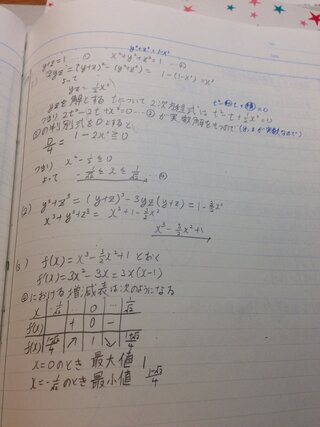 y²+z²=1-x²
y+z=1 … ① x²+y²+z²=1 … ②
(1) 2yz=(y+z)²-(y²+z²)= 1-(1-x²)=x²
よって
yz=½x²
yzを解とするtについて2次方程式は t²-t+½x²=0
つまり 2t²-2t+x²=0 … ③ が実数解をもつので(y,zが実数なので)
③の判別式をDとすると
D/4 = 1-2x²≧0
つまり x²-½≦0
よって -1/√2≦x≦1/√2
(2) y³+z³=(y+z)³-3yz(y+z)=1-3/2x²
x³+y³+z³= x³+1-3/2x²
x³-3/2x²+1
(3) f(x)=x³-3/2x²+1とおく
f'(x)=3x²-3x=3x(x-1)
における増減表は次のようになる
x … 0 … 1/√2
f'(x) + 0 -
f(x) ↗ 1 ↘
x=0のとき 最大値 1
x=-1/√2のとき 最小値